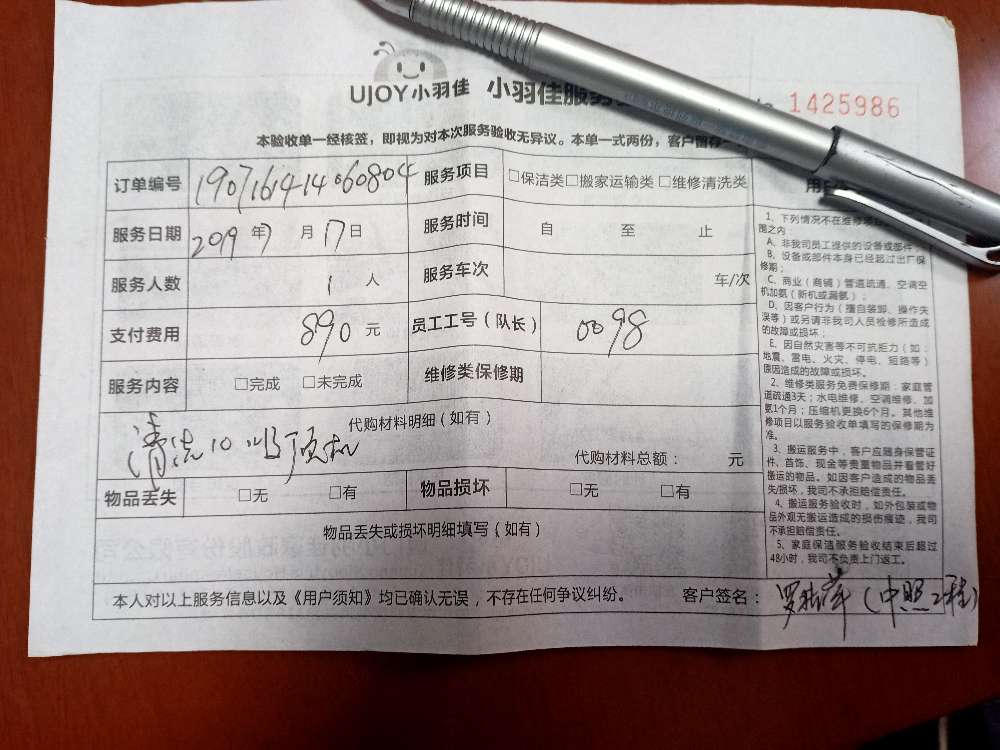 UJOY小羽佳 小羽佳服务
1425986
本验收单一经核签，即视为对本次服务验收无异议。本单一式两份，客户留存一
订单编号 1907161414060804 服务项目 □保洁类□搬家运输类□维修清洗类
服务日期 2019年7月17日 服务时间 自 至 止
服务人数 1 人 服务车次 车/次
支付费用 890 元 员工工号（队长） 0098
服务内容 □完成 □未完成 维修类保修期
代购材料明细（如有）
清洗10 吸顶机
代购材料总额： 元
物品丢失 □无 □有 物品损坏 □无 □有
物品丢失或损坏明细填写（如有）
本人对以上服务信息以及《用户须知》均已确认无误，不存在任何争议纠纷。 客户签名：罗 （中照工程）
用
1、下列情况不在维修
围之内
A、非我司员工提供的设备或部件；
B、设备或部件本身已经超过出厂保
修期；
C、商业（商铺）管道疏通、空调空
机加氨（新机或漏氨）；
D、因客户行为（擅自装卸、操作失
误等）或另请非我司人员检修所造成
的故障或损坏；
E、因自然灾害等不可抗拒力（如：
地震、雷电、火灾、停电、短路等）
原因造成的故障或损坏。
2、维修类服务免费保修期：家庭管
道疏通3天；水电维修、空调维修、加
氨1个月；压缩机更换6个月。其他维
修项目以服务验收单填写的保修期为
准。
3、搬运服务中，客户应随身保管证
件、首饰、现金等贵重物品并看管好
搬运的物品。如因客户造成的物品丢
失/损坏，我司不承担赔偿责任。
4、搬运服务验收时，如外包装或物
品外观无搬运造成的损伤痕迹，我司
不承担赔偿责任。
5、家庭保洁服务验收结束后超过
48小时，我司不负责上门返工。